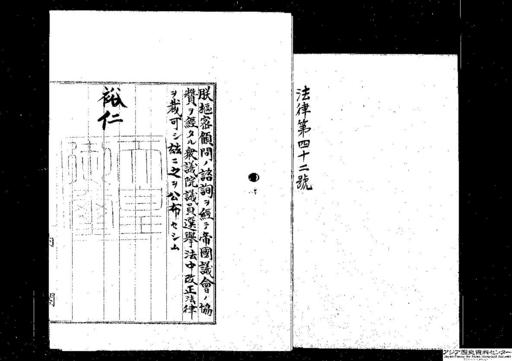 法律第四十二號
朕樞密顧問ノ諮詢ヲ經テ帝國議會ノ協
贊ヲ經タル衆議院議員選擧法中改正法律
ヲ裁可シ玆ニ之ヲ公布セシム
裕仁
内閣
アジア歴史資料センター